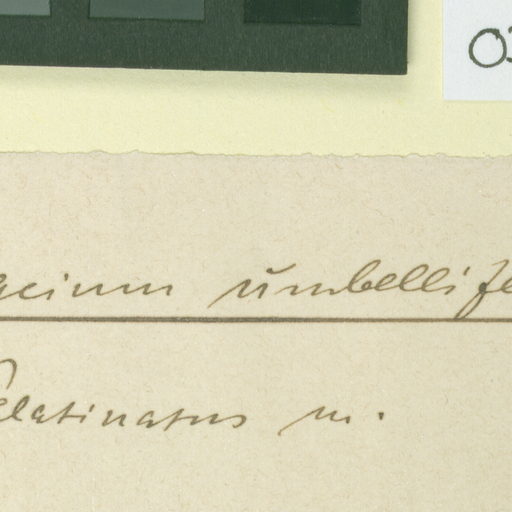 03
acium umbellife
Palatinatus m.